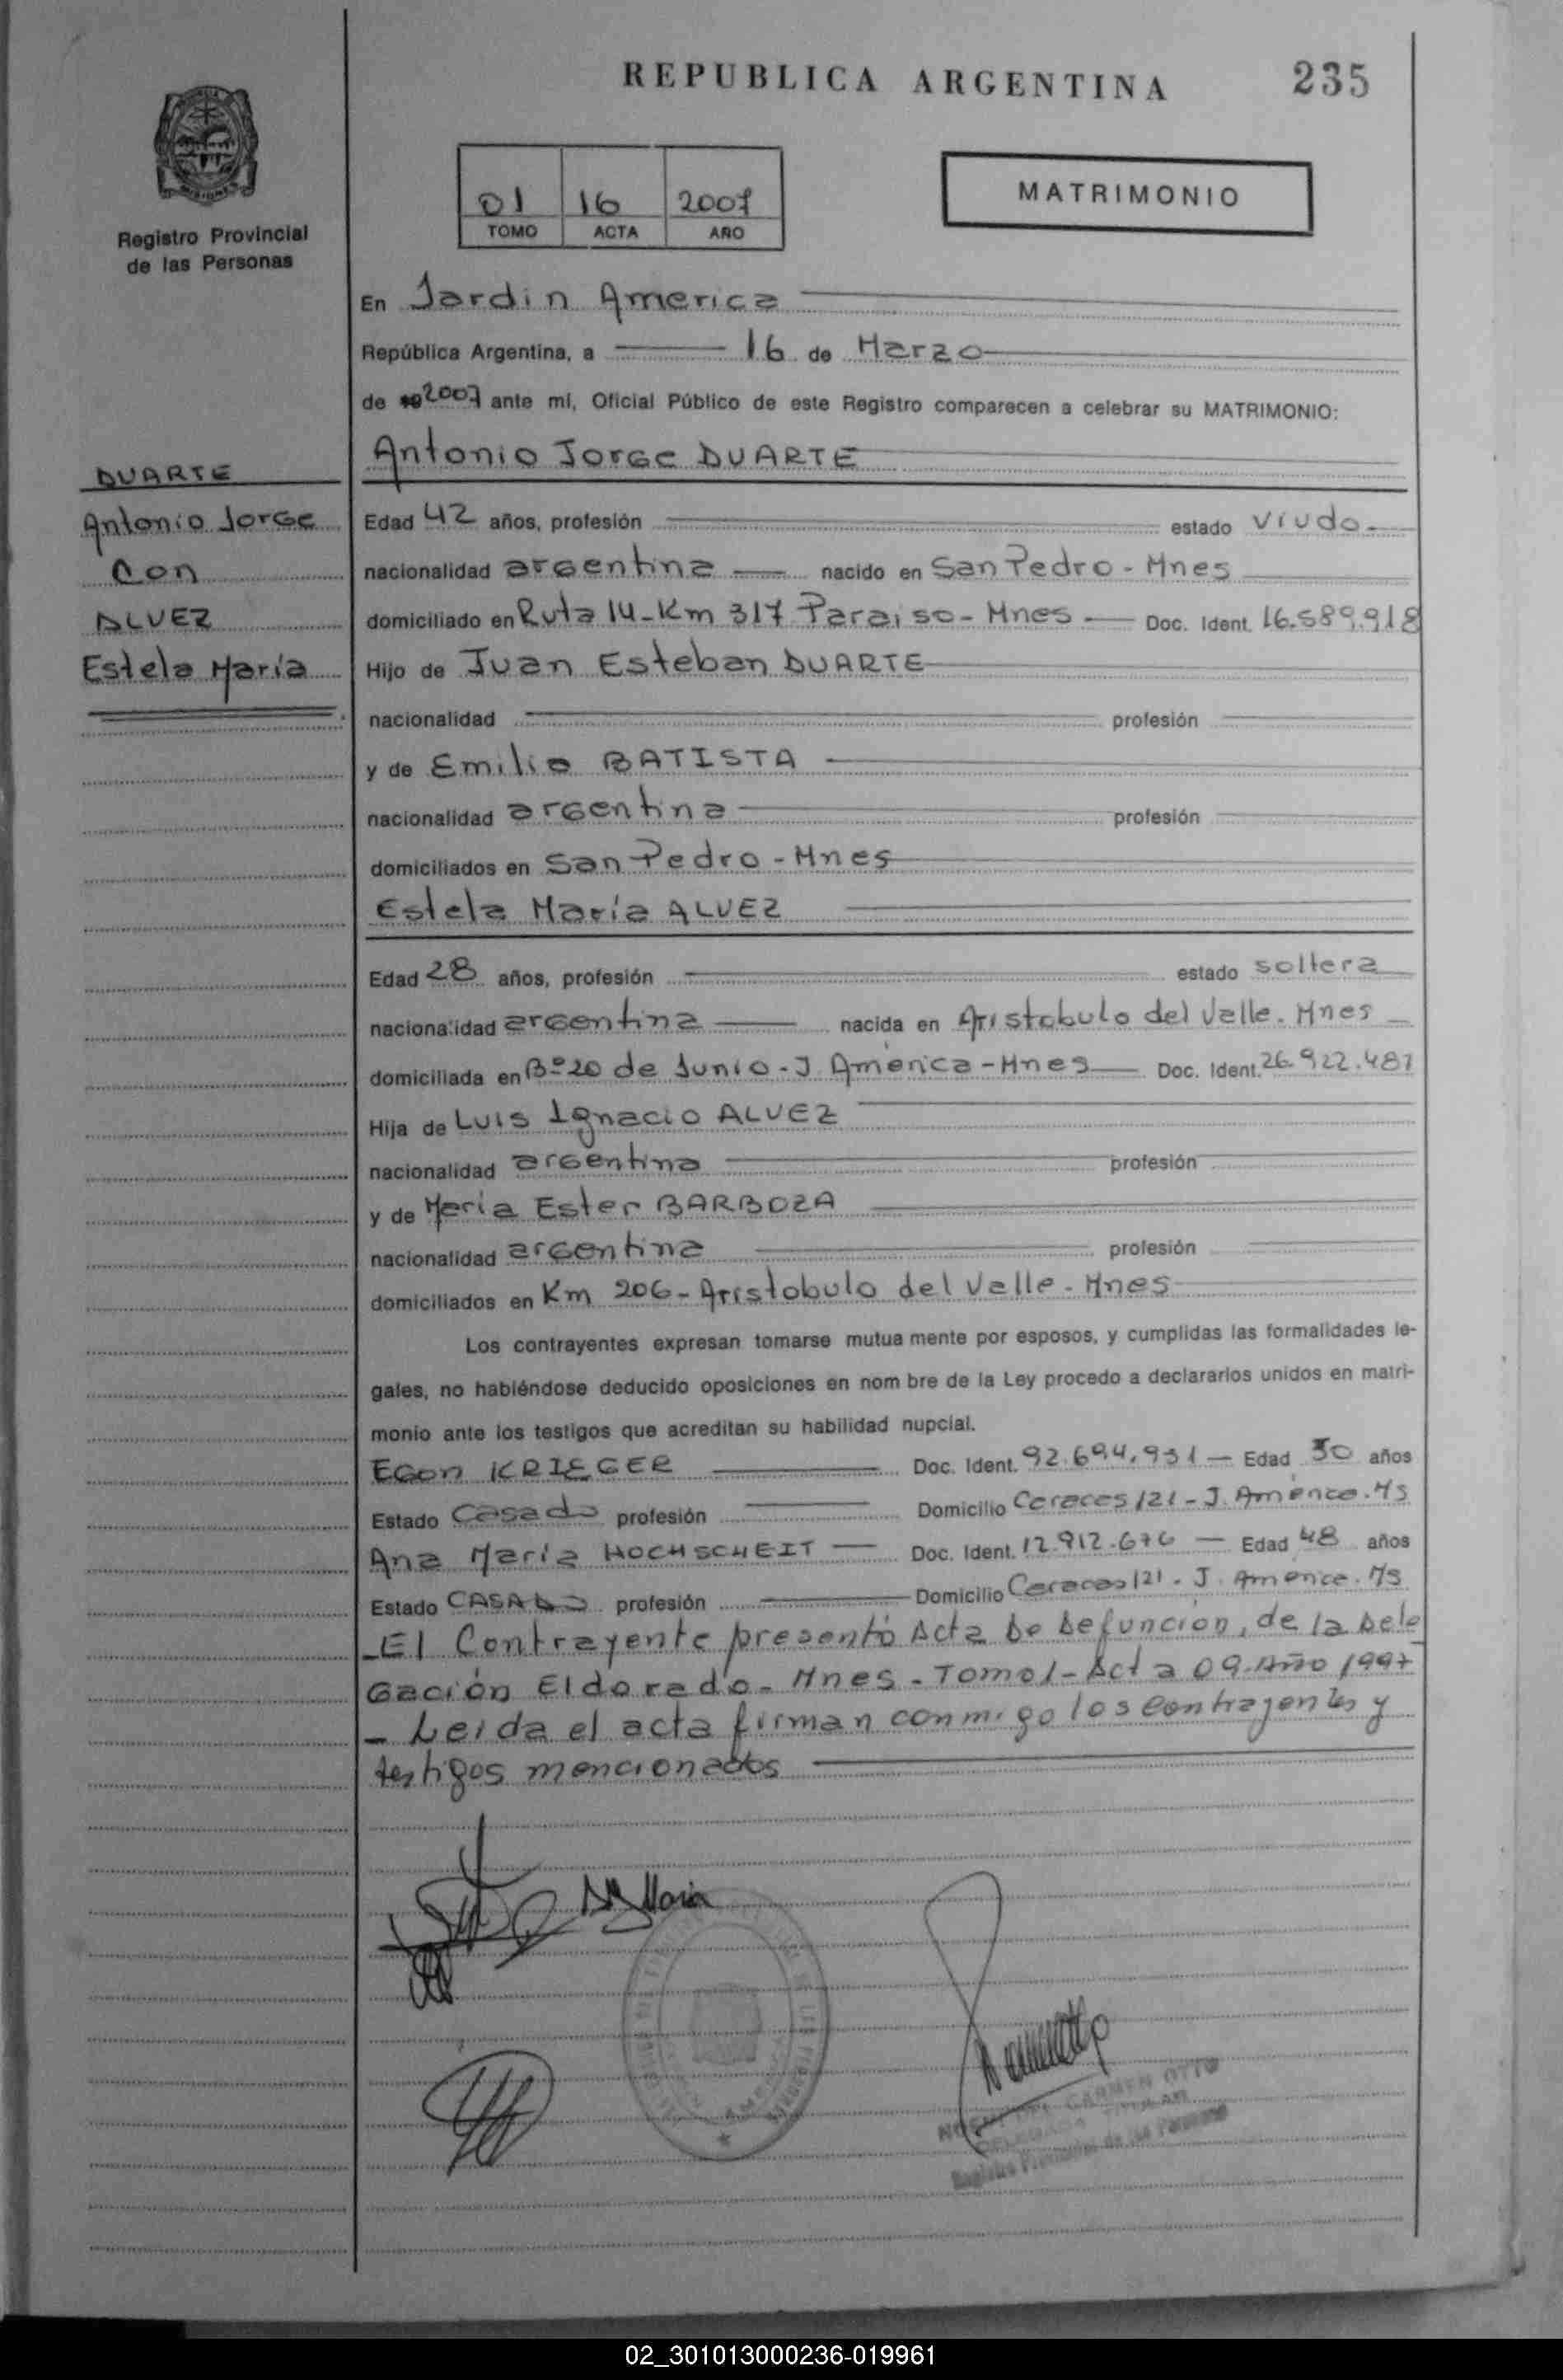 REPUBLICA ARGENTINA
235
Registro Provincial
de las Personas
01 16 2007
TOMO ACTA AÑO
MATRIMONIO
En Jardin America
República Argentina, a 16 de Marzo
de 2007 ante mí, Oficial Público de este Registro comparecen a celebrar su MATRIMONIO:
DUARTE
Antonio Jorge
Con
ALVEZ
Estela María
Antonio Jorge DUARTE
Edad 42 años, profesión estado Viudo
nacionalidad argentina nacido en San Pedro - Mnes
domiciliado en Ruta 14 - Km 317 Paraiso - Mnes Doc. Ident. 16.589.918
Hijo de Juan Esteban DUARTE
nacionalidad profesión
y de Emilia BATISTA
nacionalidad argentina profesión
domiciliados en San Pedro - Mnes
Estela María ALVEZ
Edad 28 años, profesión estado soltera
nacionalidad argentina nacida en Aristobulo del Valle. Mnes
domiciliada en Bº 20 de Junio - J. América - Mnes Doc. Ident. 26.922.481
Hija de Luis Ignacio ALVEZ
nacionalidad argentina profesión
y de María Ester BARBOZA
nacionalidad argentina profesión
domiciliados en Km 206 - Aristobulo del Valle - Mnes
Los contrayentes expresan tomarse mutua mente por esposos, y cumplidas las formalidades le-
gales, no habiéndose deducido oposiciones en nom bre de la Ley procedo a declararlos unidos en matri-
monio ante los testigos que acreditan su habilidad nupcial.
Egon KRIEGER Doc. Ident. 92.694.931 - Edad 50 años
Estado Casado profesión Domicilio Caracas 121 - J. América. Ms
Ana María HOCHSCHEIT Doc. Ident. 12.912.676 - Edad 48 años
Estado CASADO profesión Domicilio Caracas 121 - J. América. Ms
_El Contrayente presentó Acta de Defunción, de la Dele
gación Eldorado - Mnes - Tomo 1 - Acta 09. Año 1997
- Leida el acta firman conmigo los contrayentes y
testigos mencionados
CARMEN OTTO
02_301013000236-019961